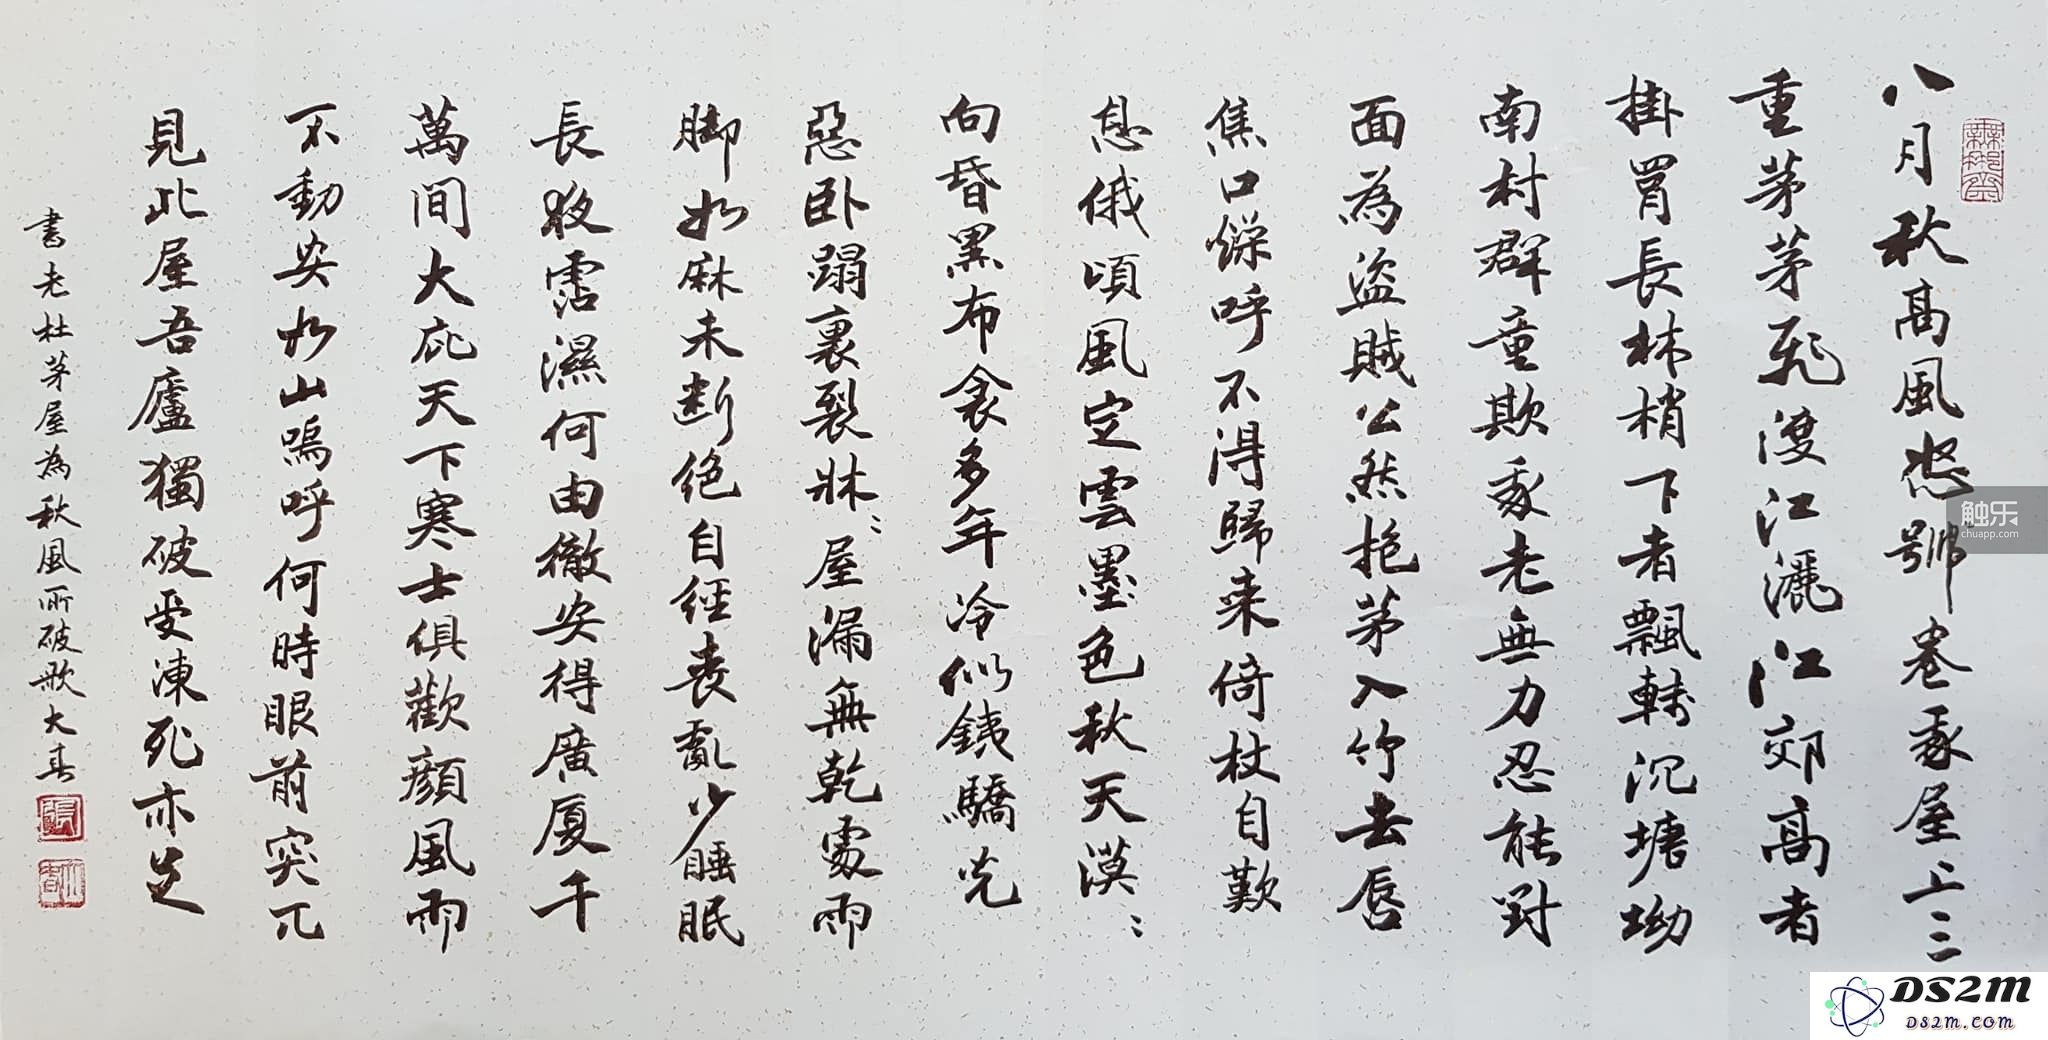 八月秋高風怒號卷我屋上三
重茅茅飛渡江灑江郊高者
掛罥長林梢下者飄轉沉塘坳
南村群童欺我老無力忍能對
面為盜賊公然抱茅入竹去唇
焦口燥呼不得歸來倚杖自歎
息俄頃風定雲墨色秋天漠〻
向昏黑布衾多年冷似銕驕兒
惡卧蹋裏裂牀〻屋漏無乾處雨
脚如麻未断絕自經喪亂少睡眠
長夜霑濕何由徹安得廣厦千
萬間大庇天下寒士俱歡顔風雨
不動安如山嗚呼何時眼前突兀
見此屋吾廬獨破受凍死亦足
書老杜茅屋為秋風所破歌大春
触乐
chuapp.com
DS2M
DS2M.com